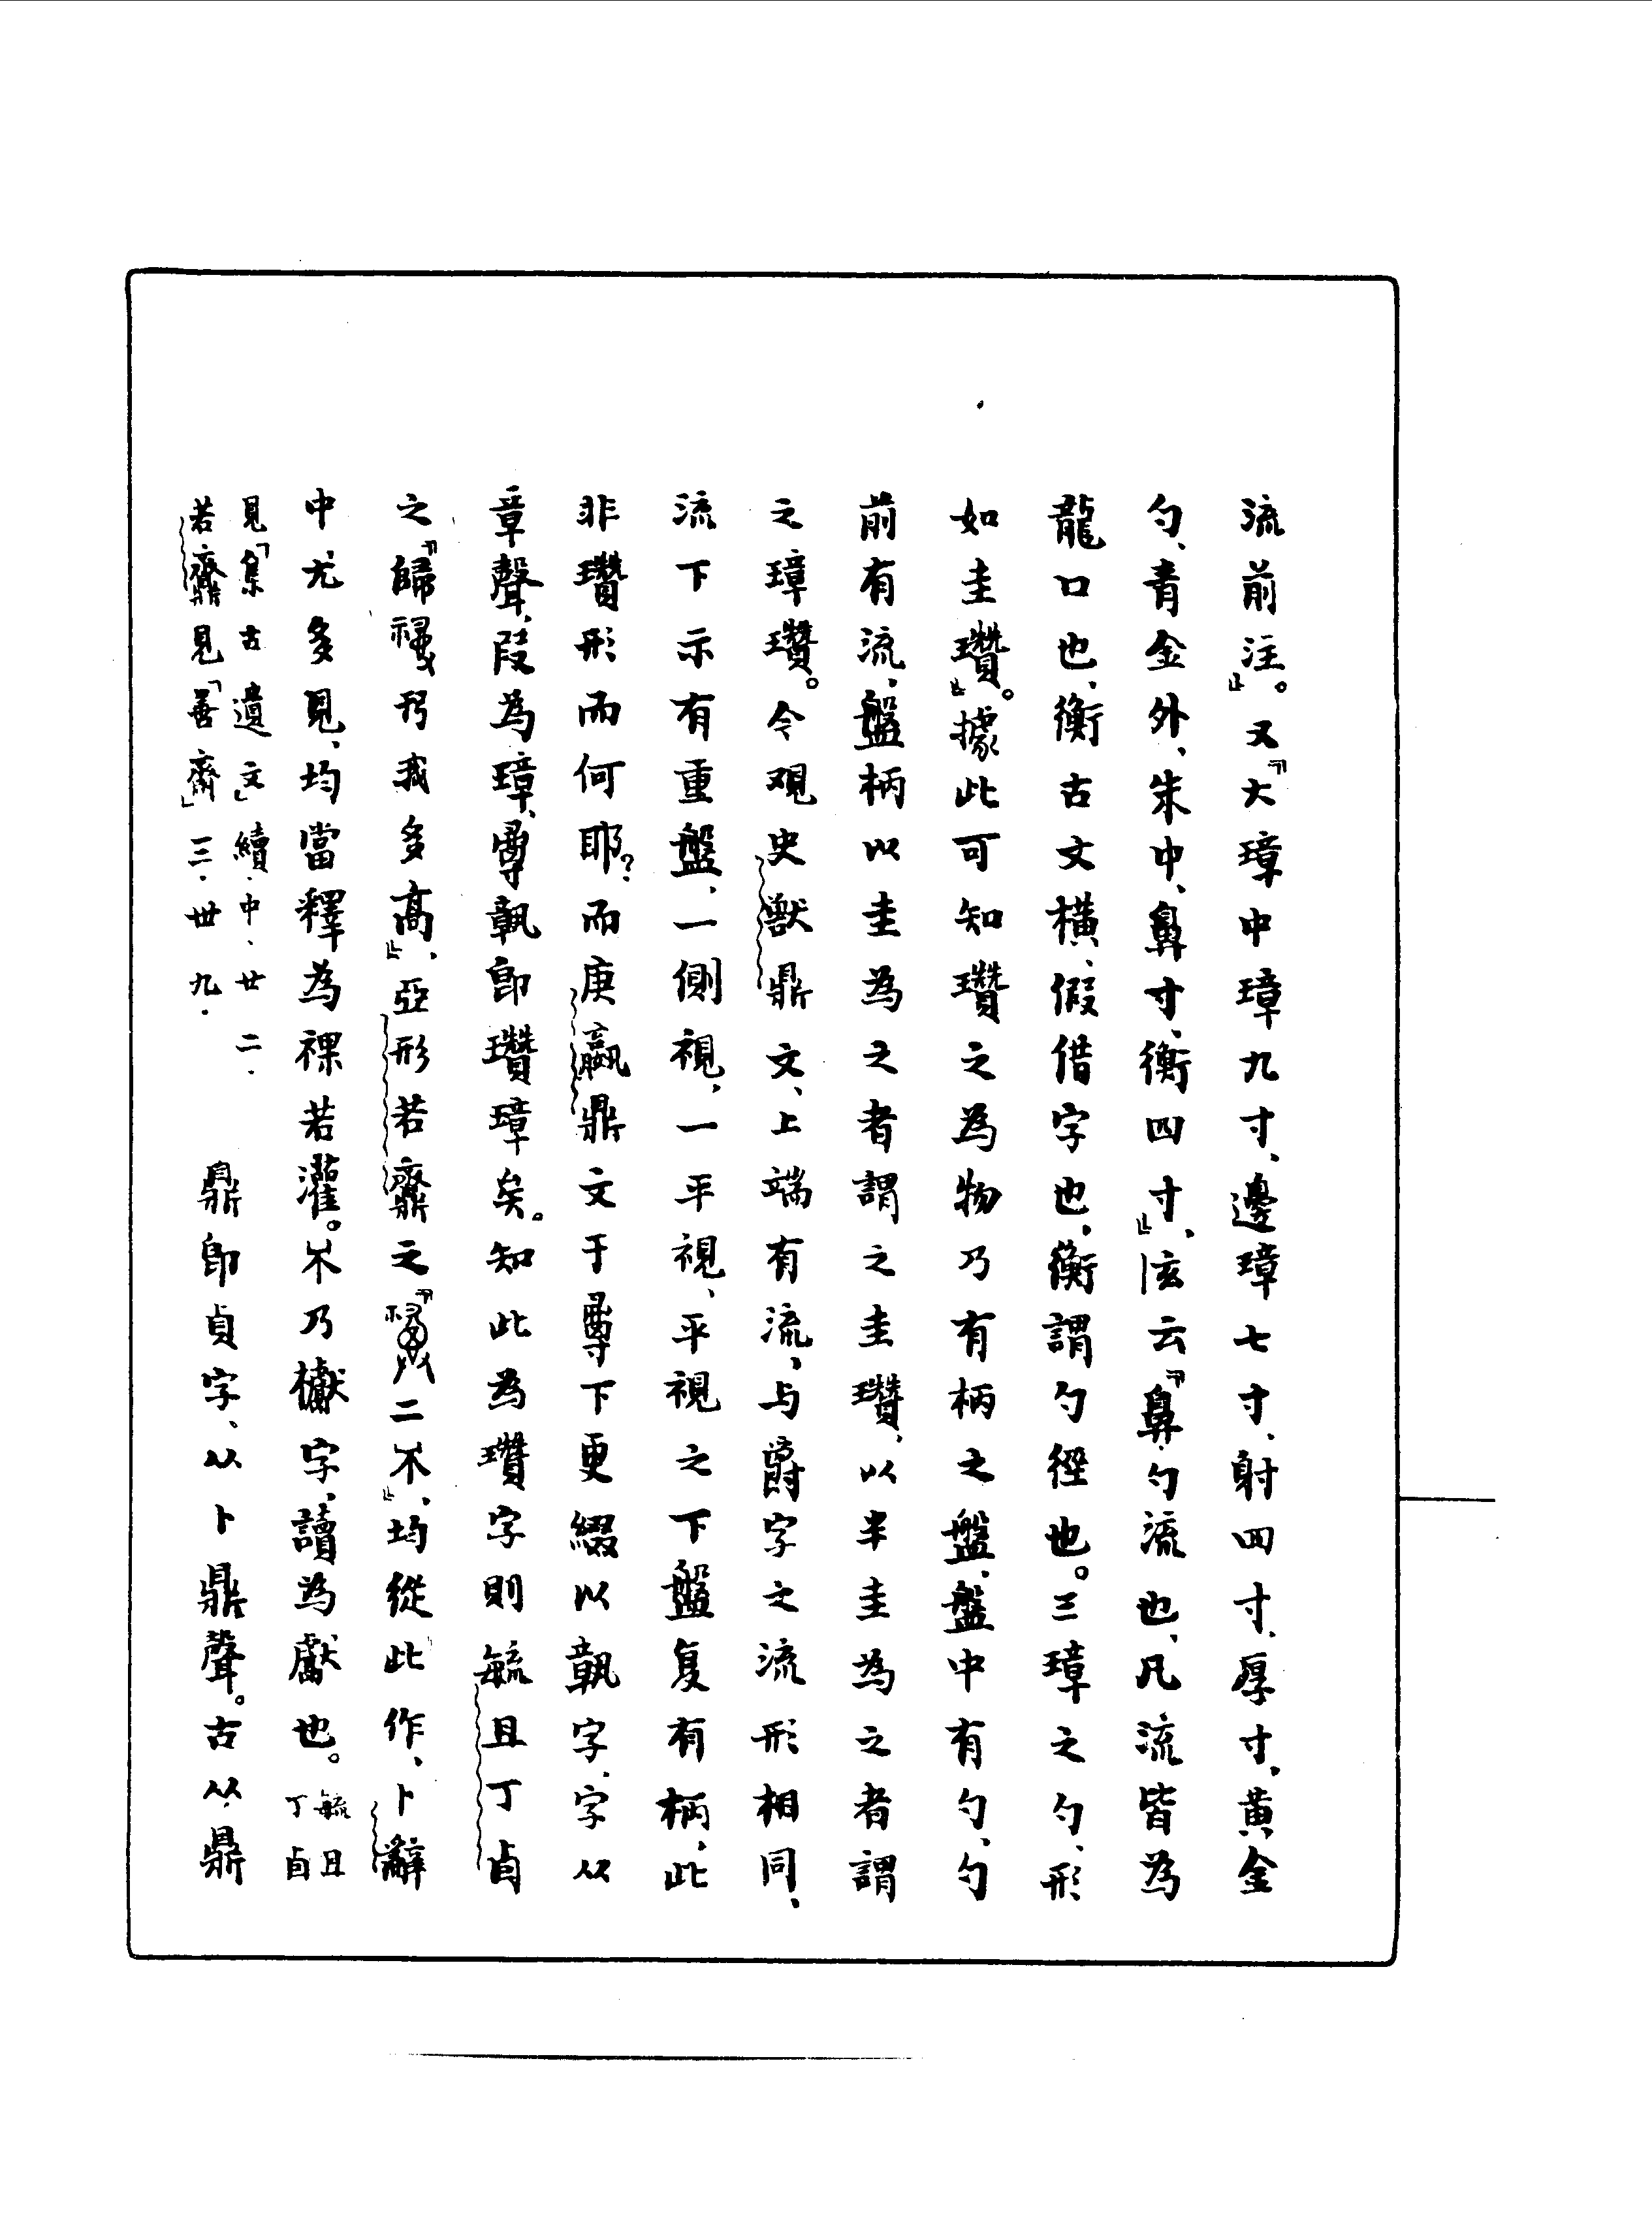 流前注。』又『大璋中璋九寸、邊璋七寸、射四寸、厚寸、黄金
勺、青金外、朱中、鼻寸、衡四寸』、注云『鼻、勺流也、凡流皆為
龍口也、衡古文橫、假借字也、衡謂勺徑也。三璋之勺、形
如圭瓚』。據此可知瓚之為物乃有柄之盤、盤中有勺、勺
前有流、盤柄以圭為之者謂之圭瓚、以半圭為之者謂
之璋瓚。今观史獸鼎文、上端有流、与爵字之流形相同、
流下示有重盤、一側視、一平視、平視之下盤复有柄、此
非瓚形而何耶？而庚嬴鼎文于下更綴以字、字从
章聲、段為璋、即瓚璋矣。知此為瓚字則毓且丁卣
之『歸我多高』、亞形若鼎之『二不』、均從此作、卜辭
中尤多見、均當釋為祼若灌。不乃字、讀為獻也。毓且丁卣
見「集古遺文」續・中、廿二．
若鼎見「善齋」三．卅九．
鼎即貞字、从卜鼎聲。古从鼎